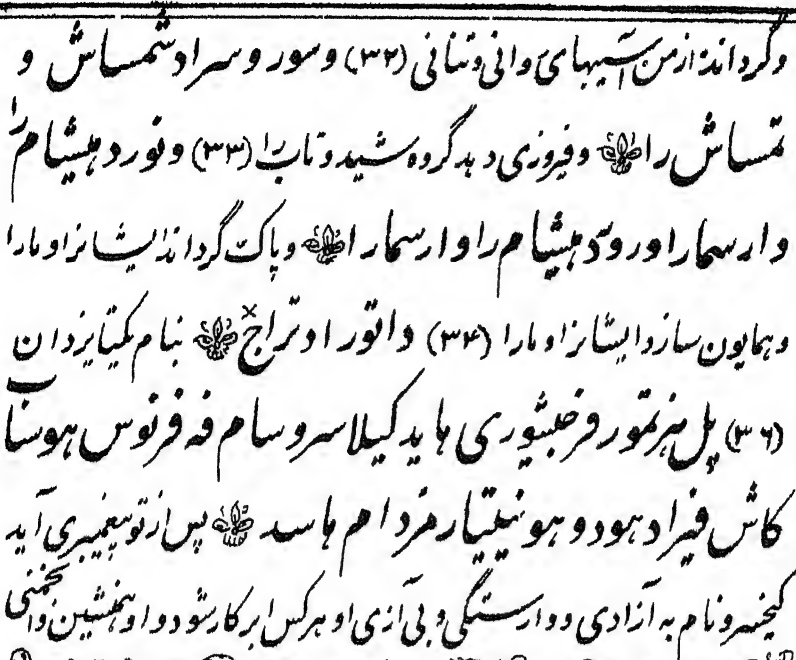 و گرداند از من آسیبهای روانی و تنانی (۳۲) و سور و سراد شمساش و
تمساش را و فیروزی دهد گروه شید و تاب را (۳۳) و نورد هیشام را
وارسمار اورود هیشام را و ارسمار را و پاک گرداند ایشانرا و مارا
و همایون سازد ایشانرا و مارا (۳۴) و اتور اد تراج بنام یکتا یزدان
(۳۶) پل هزتمور فرجیشوری هاید کیلاسرو سام فه فرنوس هوسناب
کاش فیراد هود و هو نیتیار مزدام هاسد پس از تو پیغمبری آید
کیخسرو نام به آزادی و وارستگی و بی آزی او هرکس ابر کار شود و او همنشین